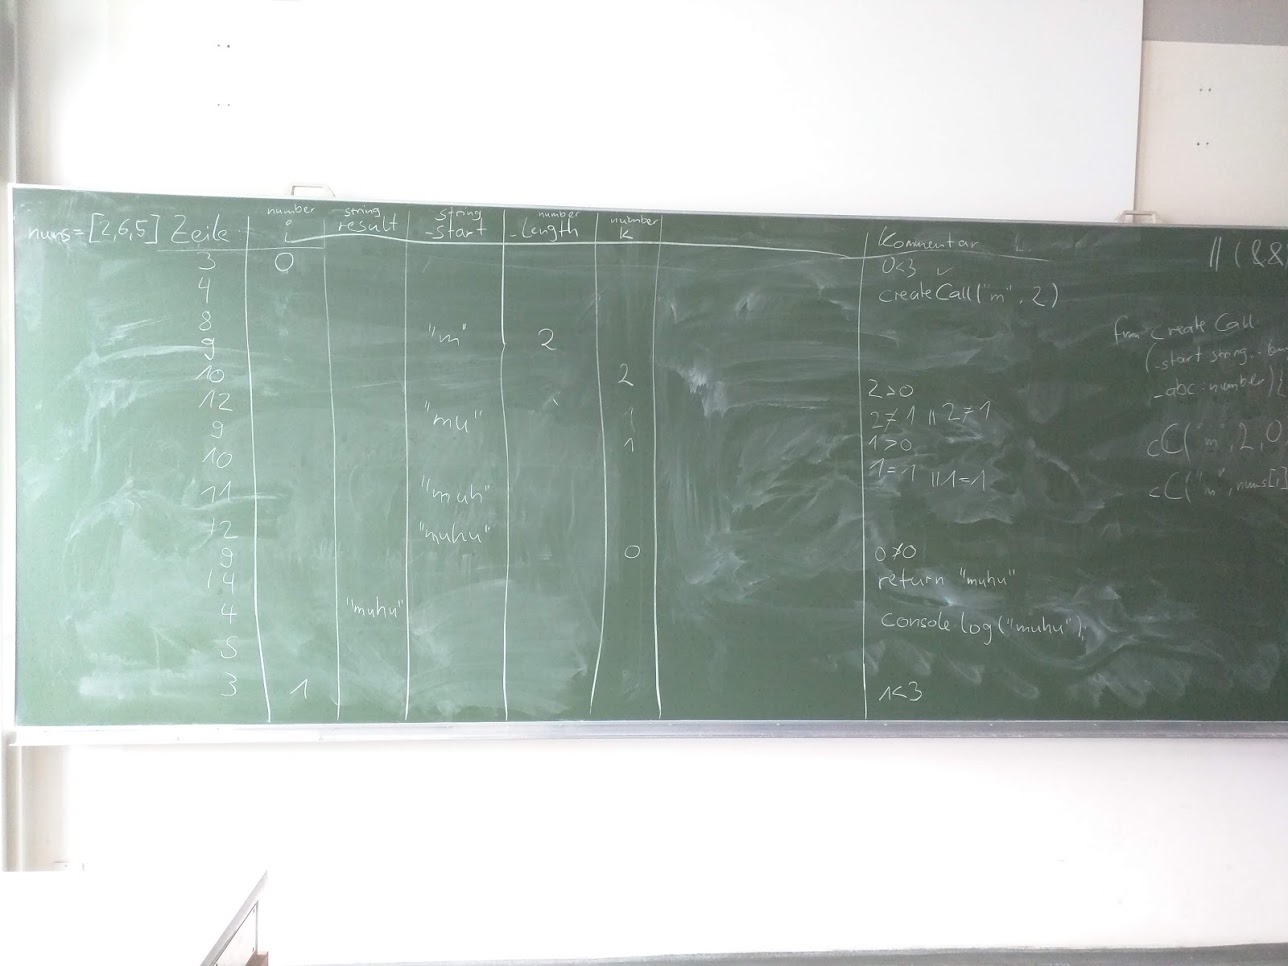 nums=[2,6,5] Zeile number i string result string _start number _length number k Kommentar || (&&
3 0 0<3 ✓
4 createCall("m", 2)
8 "m" 2
9 2 2>0
10 2≠1 || 2≠1
12 "mu"
9 1 1>0
10 1=1 || 1=1
11 "muh"
12 "muhu"
9 0 0≯0
14 return "muhu"
4 "muhu"
5 console.log("muhu");
3 1 1<3
create Call
(_start string
_abc: number)
cC("m", 2, 0
cC("m", nums[i]